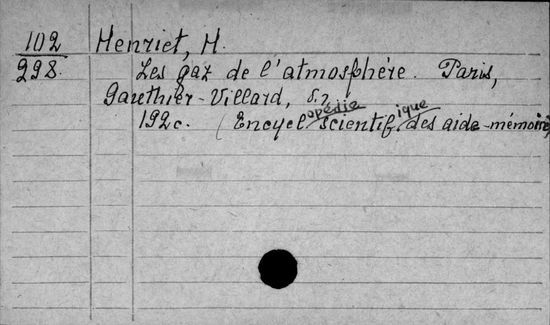 102 Henriet, H.
298. Les gaz de l'atmosphére. Paris,
Gauthier-Villard, s.
192 c. (Encyclopédie scientifique des aide-mémoire)